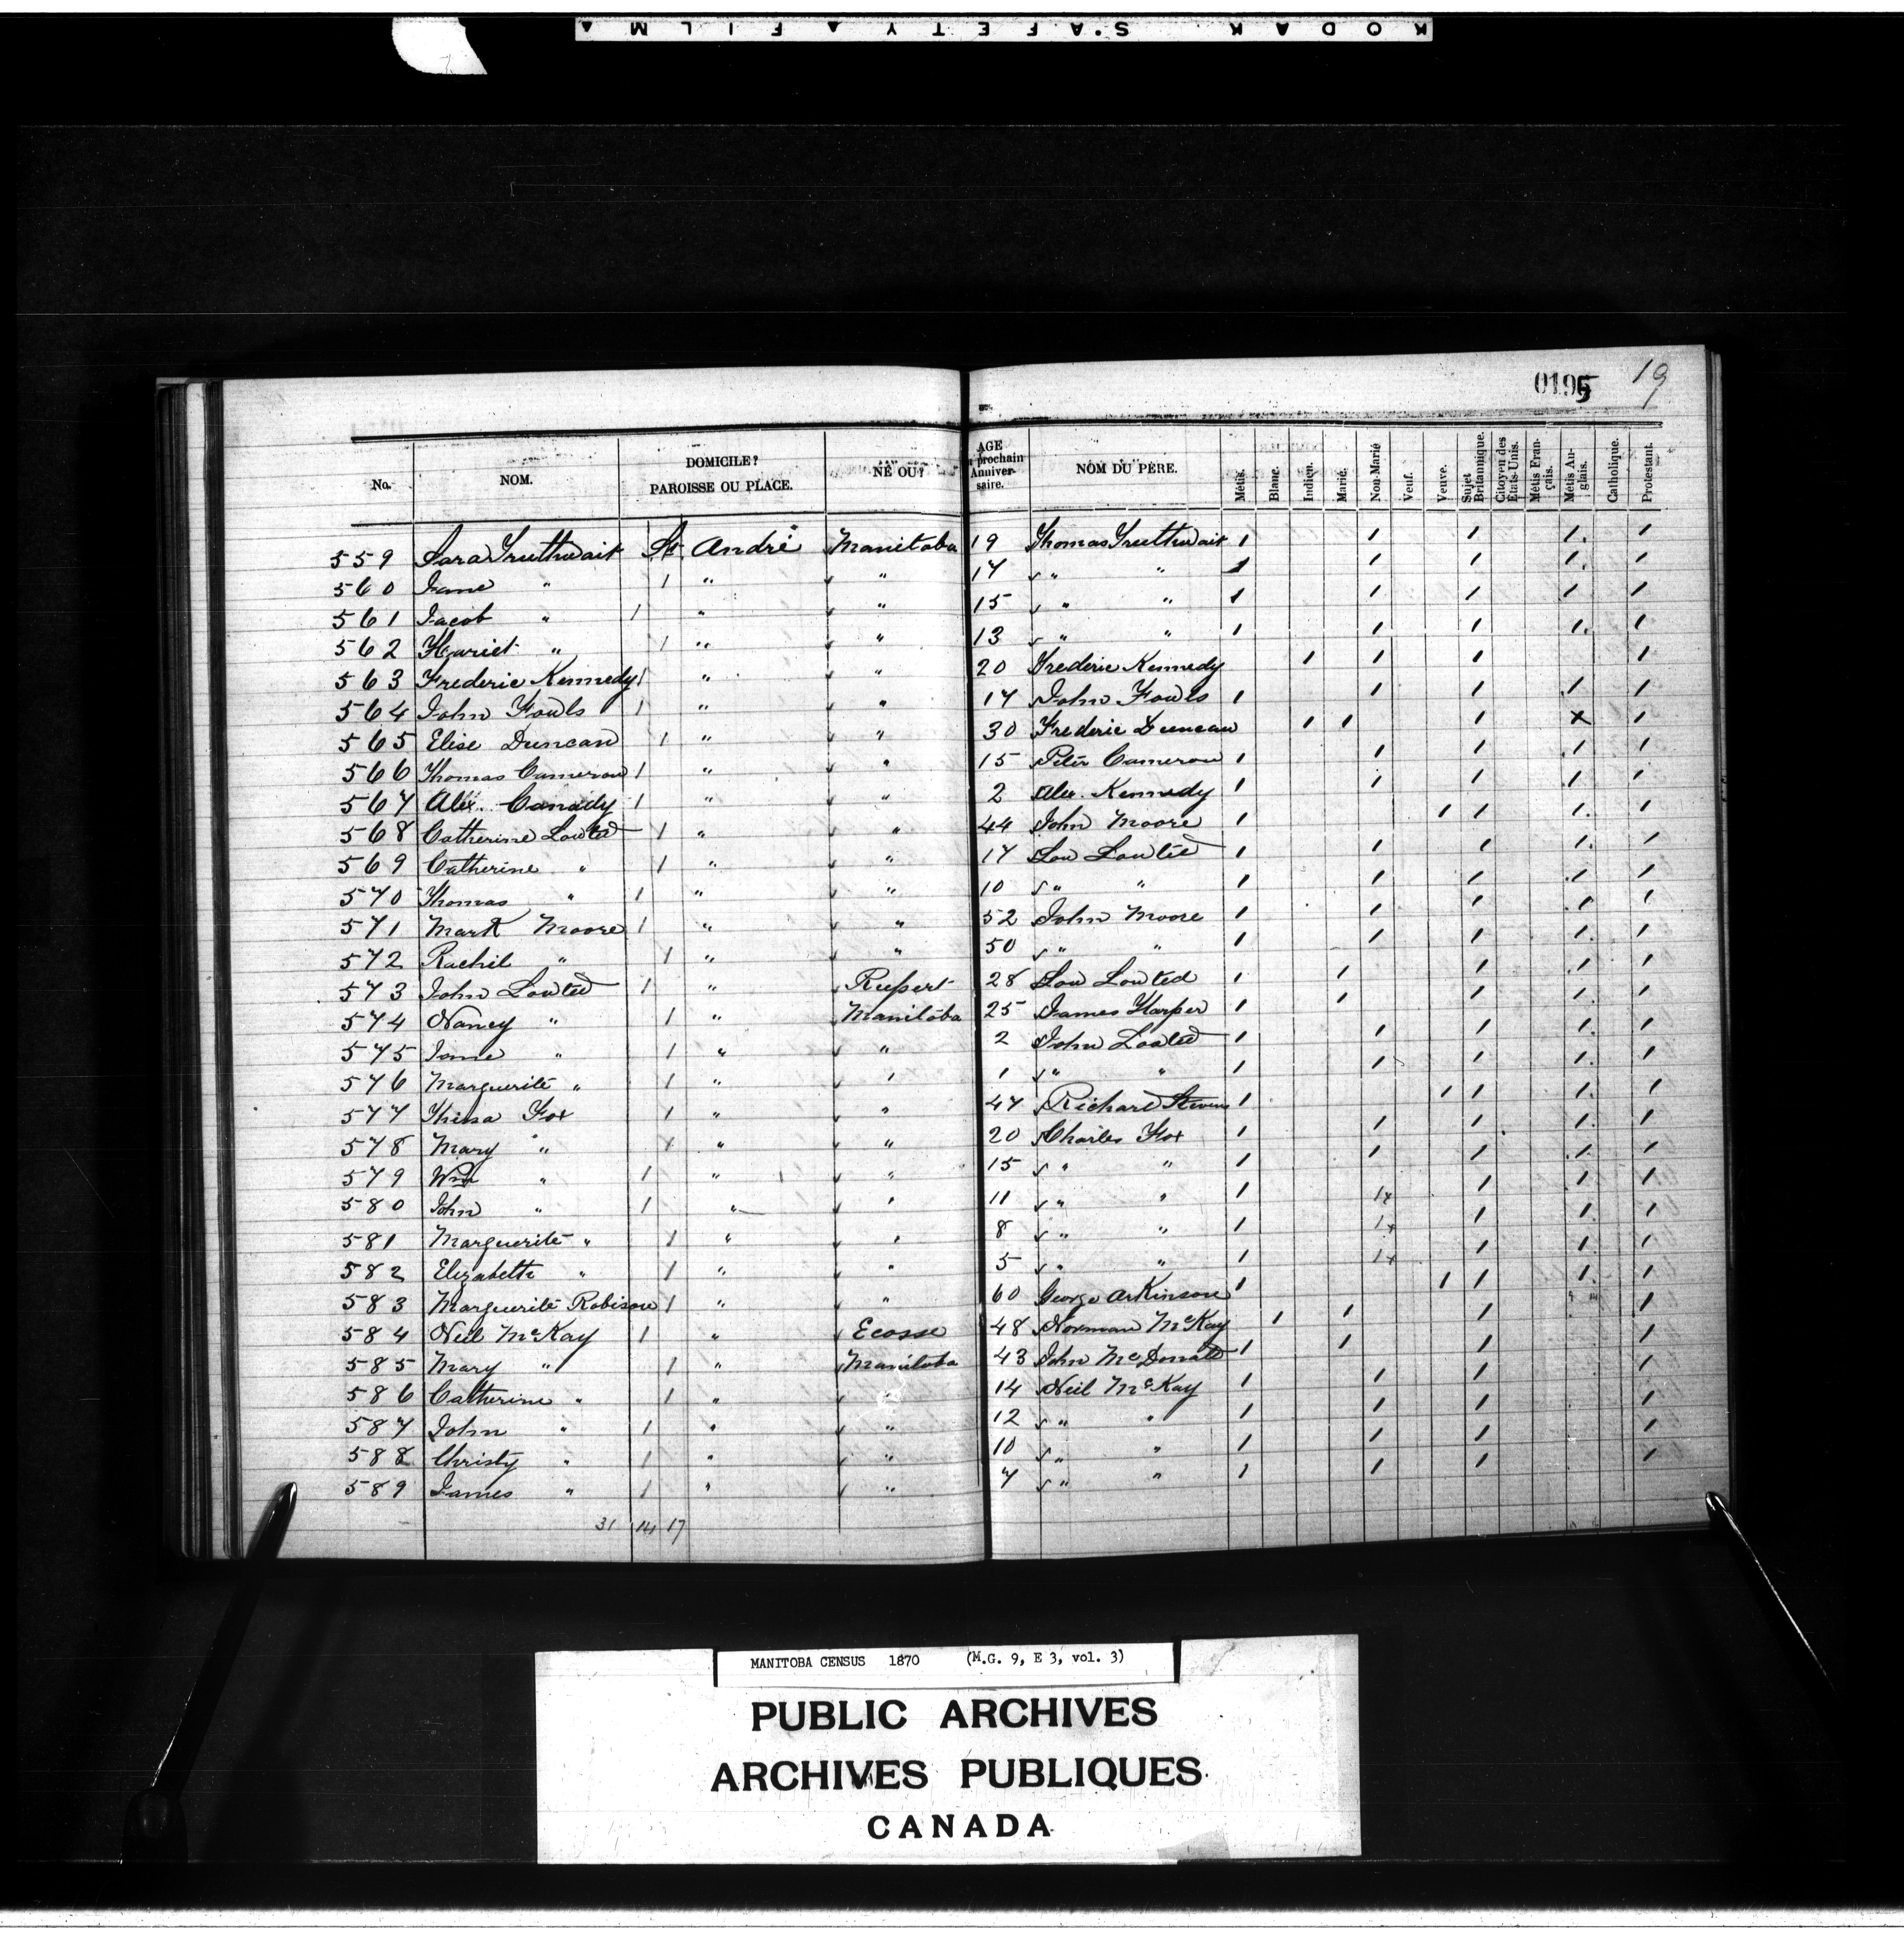 KODAK SAFETY FILM
0195 19
No. NOM. DOMICILE? PAROISSE OU PLACE. NÉ OU? AGE prochain Anniversaire. NOM DU PÈRE. Métis. Blanc. Indien. Marié. Non-Marié Veuf. Veuve. Sujet Britannique. Citoyen des États-Unis. Métis Français. Métis Anglais. Catholique. Protestant.
559 Sara Truthwait St. André Manitoba 19 Thomas Truthwait 1 1 1 1. 1
560 Jane " 1 " " 17 " " 1 1 1 1. 1
561 Jacob " 1 " " 15 " " 1 1 1 1 1
562 Hariet " 1 " " 13 " " 1 1 1 1. 1
563 Frederic Kennedy 1 " " 20 Frederic Kennedy 1 1 1 1
564 John Fowls 1 " " 17 John Fowls 1 1 1 1 1
565 Elise Duncan 1 " " 30 Frederic Duncan 1 1 1 x 1
566 Thomas Cameron 1 " " 15 Peter Cameron 1 1 1 1 1
567 Alex. Canady 1 " " 2 Alex. Kennedy 1 1 1 1 1
568 Catherine Lowted 1 " " 44 John Moore 1 1 1 1. 1
569 Catherine " 1 " " 17 Low Lowted 1 1 1 1. 1
570 Thomas " 1 " " 10 " " 1 1 1 1 1
571 Mark Moore 1 " " 52 John Moore 1 1 1 1 1
572 Rachel " 1 " " 50 " " 1 1 1 1. 1
573 John Lowted 1 " Rupert 28 Low Lowted 1 1 1 1 1
574 Nancy " 1 " Manitoba 25 James Harper 1 1 1 1. 1
575 Jane " 1 " " 2 John Lowted 1 1 1 1. 1
576 Marguerite " 1 " " 1 " " 1 1 1 1. 1
577 Fox 1 " " 47 Richard Stevens 1 1 1 1. 1
578 Mary " 1 " " 20 Charles Fox 1 1 1 1. 1
579 Wm " 1 " " 15 " " 1 1 1 1. 1
580 John " 1 " " 11 " " 1 1x 1 1 1
581 Marguerite " 1 " " 8 " " 1 1x 1 1. 1
582 Elizabeth " 1 " " 5 " " 1 1x 1 1. 1
583 Marguerite Robison 1 " " 60 George Arkinson 1 1 1 1. 1
584 Neil McKay 1 " Ecosse 48 Norman McKay 1 1 1 1
585 Mary " 1 " Manitoba 43 John McDonald 1 1 1 1
586 Catherine " 1 " " 14 Neil McKay 1 1 1 1
587 John " 1 " " 12 " " 1 1 1 1
588 Christy " 1 " " 10 " " 1 1 1 1
589 James " 1 " " 7 " " 1 1 1 1
31 14 17
MANITOBA CENSUS 1870 (M.G. 9, E 3, vol. 3)
PUBLIC ARCHIVES
ARCHIVES PUBLIQUES
CANADA